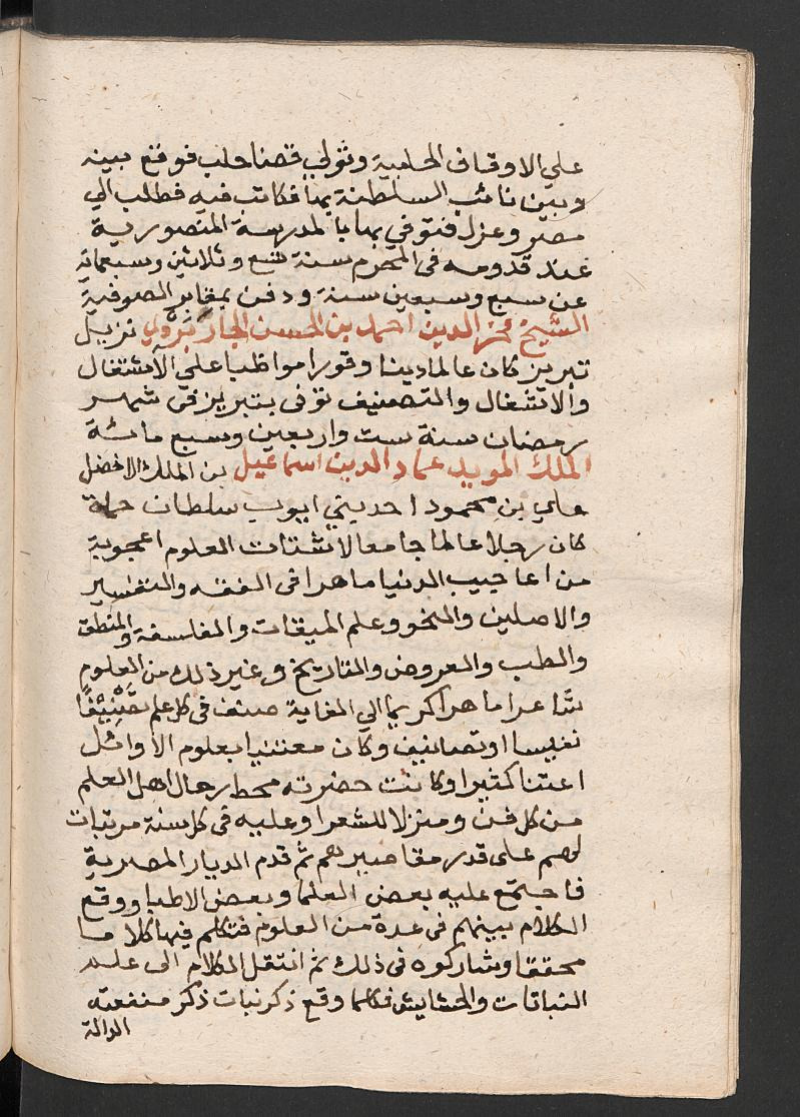 علي الاوقاف الحلبية وتولي قضا حلب فوقع بينه
وبين نائب السلطنة بها فكاتب فيه فطلب الي
مصر وعزل فتوفي بها بالمدرسة المنصورية
عند قدومه فى المحرم سنة تسع وثلاثين وسبعماية
عن سبع وسبعين سنة ودفن بمقابر الصوفية
الشيخ فخر الدين احمد بن الحسن الجاربردي نزيل
تبريز كان عالما دينا وقورا مواظبا علي الاشتغال
والاشغال والتصنيف توفى بتبريز فى شهر
رمضان سنة ست واربعين وسبع مائة
الملك المويد عماد الدين اسماعيل بن الملك الافضل
علي بن محمود احد بني ايوب سلطان حماة
كان رجلا عالما جامعا لاشتات العلوم اعجوبة
من اعاجيب الدنيا ماهرا فى الفقه والتفسير
والاصلين والنحو وعلم الميقات والفلسفة والمنطق
والطب والعروض والتاريخ وغير ذلك من العلوم
شاعرا ماهرا كريما الي الغاية صنف فى كل علم تصنيفا
نفيسا او تصانيف وكان معتنيا بعلوم الاوائل
اعتنا كثيرا وكانت حضرته محط رحال اهل العلم
من كل فن ومنزلا للشعرا وعليه فى كل سنة مرتبات
لهم على قدر مقاديرهم ثم قدم الديار المصرية
فاجتمع عليه بعض العلما وبعض الاطبا ووقع
الكلام بينهم فى عدة من العلوم فتكلم فيها كلاما
محققا وشاركوه فى ذلك ثم انتقل الكلام الى علم
النباتات والحشايش فكلما وقع ذكر نبات ذكر منفعته
الدالة